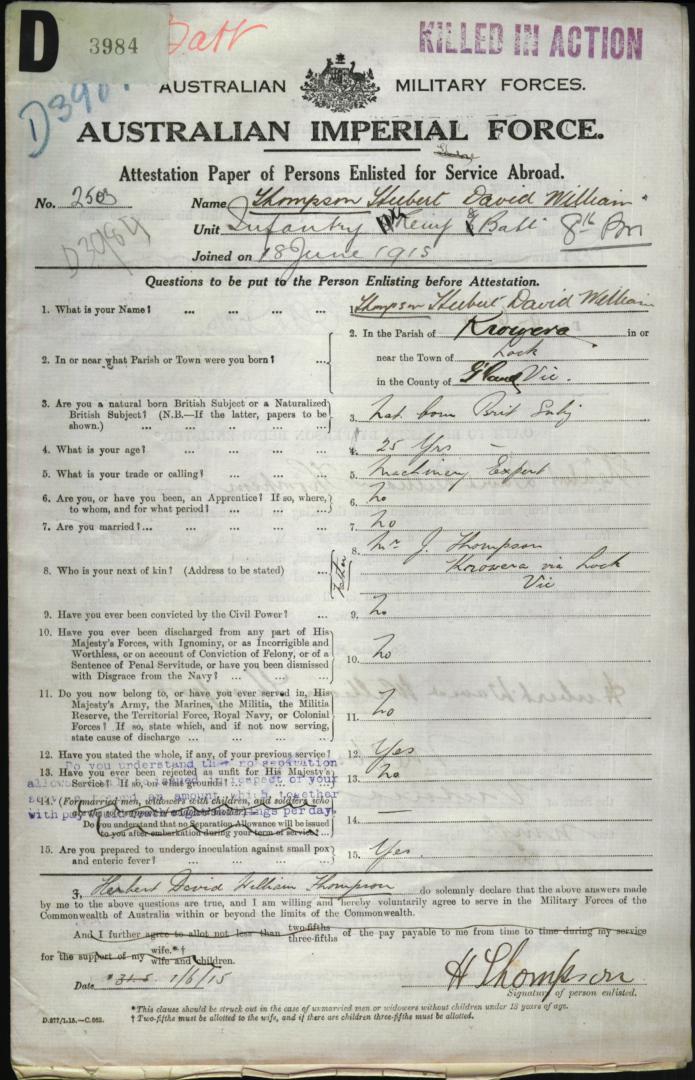 D 3984 Batt KILLED IN ACTION
D3984
AUSTRALIAN MILITARY FORCES.
AUSTRALIAN IMPERIAL FORCE.
Attestation Paper of Persons Enlisted for Service Abroad.
No. 2503 Name Thompson Hubert David William
D3984 Unit Infantry Reinf 8 Batt 8th Bn
Joined on 18 June 1915
Questions to be put to the Person Enlisting before Attestation.
1. What is your Name? ... ... ... ... 1. Thompson Hubert David William
2. In or near what Parish or Town were you born? ... 2. In the Parish of Krowera in or
near the Town of Lock
in the County of Vic.
3. Are you a natural born British Subject or a Naturalized
British Subject? (N.B.—If the latter, papers to be
shown.) ... ... ... ... ... 3. Nat. born Brit Subj
4. What is your age? ... ... ... ... 4. 25 Yrs —
5. What is your trade or calling? ... ... ... 5. Machinery Expert
6. Are you, or have you been, an Apprentice? If so, where,
to whom, and for what period? ... ... ... 6. No
7. Are you married?... ... ... ... ... 7. No
8. Who is your next of kin? (Address to be stated) ... Father 8. Mr J. Thompson
Krowera via Lock
Vic
9. Have you ever been convicted by the Civil Power? ... 9. No
10. Have you ever been discharged from any part of His
Majesty's Forces, with Ignominy, or as Incorrigible and
Worthless, or on account of Conviction of Felony, or of a
Sentence of Penal Servitude, or have you been dismissed
with Disgrace from the Navy? ... ... ... 10. No
11. Do you now belong to, or have you ever served in, His
Majesty's Army, the Marines, the Militia, the Militia
Reserve, the Territorial Force, Royal Navy, or Colonial
Forces? If so, state which, and if not now serving,
state cause of discharge ... ... ... ... 11. No
12. Have you stated the whole, if any, of your previous service? 12. Yes
Do you understand that no separation
13. Have you ever been rejected as unfit for His Majesty's
Service? If so, on what grounds? ... ... ... 13. No
allowance issued in respect of your
amount which together
14. (For married men, widowers with children, and soldiers who
with pay per day.
Do you understand that no Separation Allowance will be issued
to you after embarkation during your term of service? 14. —
15. Are you prepared to undergo inoculation against small pox
and enteric fever? ... ... ... ... 15. Yes.
I, Herbert David William Thompson do solemnly declare that the above answers made
by me to the above questions are true, and I am willing and hereby voluntarily agree to serve in the Military Forces of the
Commonwealth of Australia within or beyond the limits of the Commonwealth.
And I further agree to allot not less than two-fifths three-fifths of the pay payable to me from time to time during my service
for the support of my wife.*† wife and children.
Date 31.5. 1/6/15 H Thompson
Signature of person enlisted.
*This clause should be struck out in the case of unmarried men or widowers without children under 18 years of age.
† Two-fifths must be allotted to the wife, and if there are children three-fifths must be allotted.
D.277/1.15.—C.862.